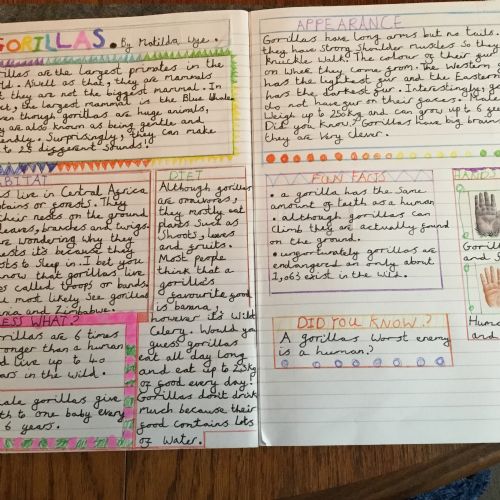 GORILLAS. By Matilda Wye.
rillas are the largest primates in the
ld. Aswell as that, they are mammals
t they are not the biggest mammal. In
ct, the largest mammal is the Blue Whale
ven though gorillas are huge animals,
ey are also known as being gentle and
iendly. Surprisingly, they can make
to 25 different Sounds!
ABITA
s live in Central Africa
ntains or forests. They
their nests on the ground
leaves, branches and twigs.
are wondering why they
nests it's because they
ests to Sleep in. I bet you
know that gorillas live
es called troops or bands.
u most likely See gorillas
ania and Zimbabwe.
ESS WHAT?
rillas are 6 times
ronger than a human
d live up to 40
ars in the wild.
male gorillas give
th to one baby every
6 years.
DIET
Although gorillas
are omnivores,
they mostly eat
plants Such as
Shoots, leaves
and fruits.
Most people
think that a
gorilla's
favourite food
is banna,
however it's Wild
Celery. Would you
guess gorillas
eat all day long
and eat up to 25kg
of food every day?
Gorillas don't drink
much because their
food contains lots
of water.
APPEARANCE
Gorillas have long arms but no tails.
they have Strong Shoulder muscles So they
Knuckle Walk. The colour of their
on Where they come from. The Western
has the lightest fur and the Eastern
has the darkest fur. Interestingly, go
do not have fur on their faces. Male
Weigh up to 250kg and can grow up to 6
Did you Know? Gorillas have big brains
they are Very Clever.
FUN FACTS
• a gorilla has the Same
amount of teeth as a human
• although gorillas can
Climb they are actually found
on the ground.
• unfortunately gorillas are
endangered an only about
1,063 exist in the wild.
DID YOU KNOW?
A gorillas Worst enemy
is a human?
HANDS
Goril
and
Human
and